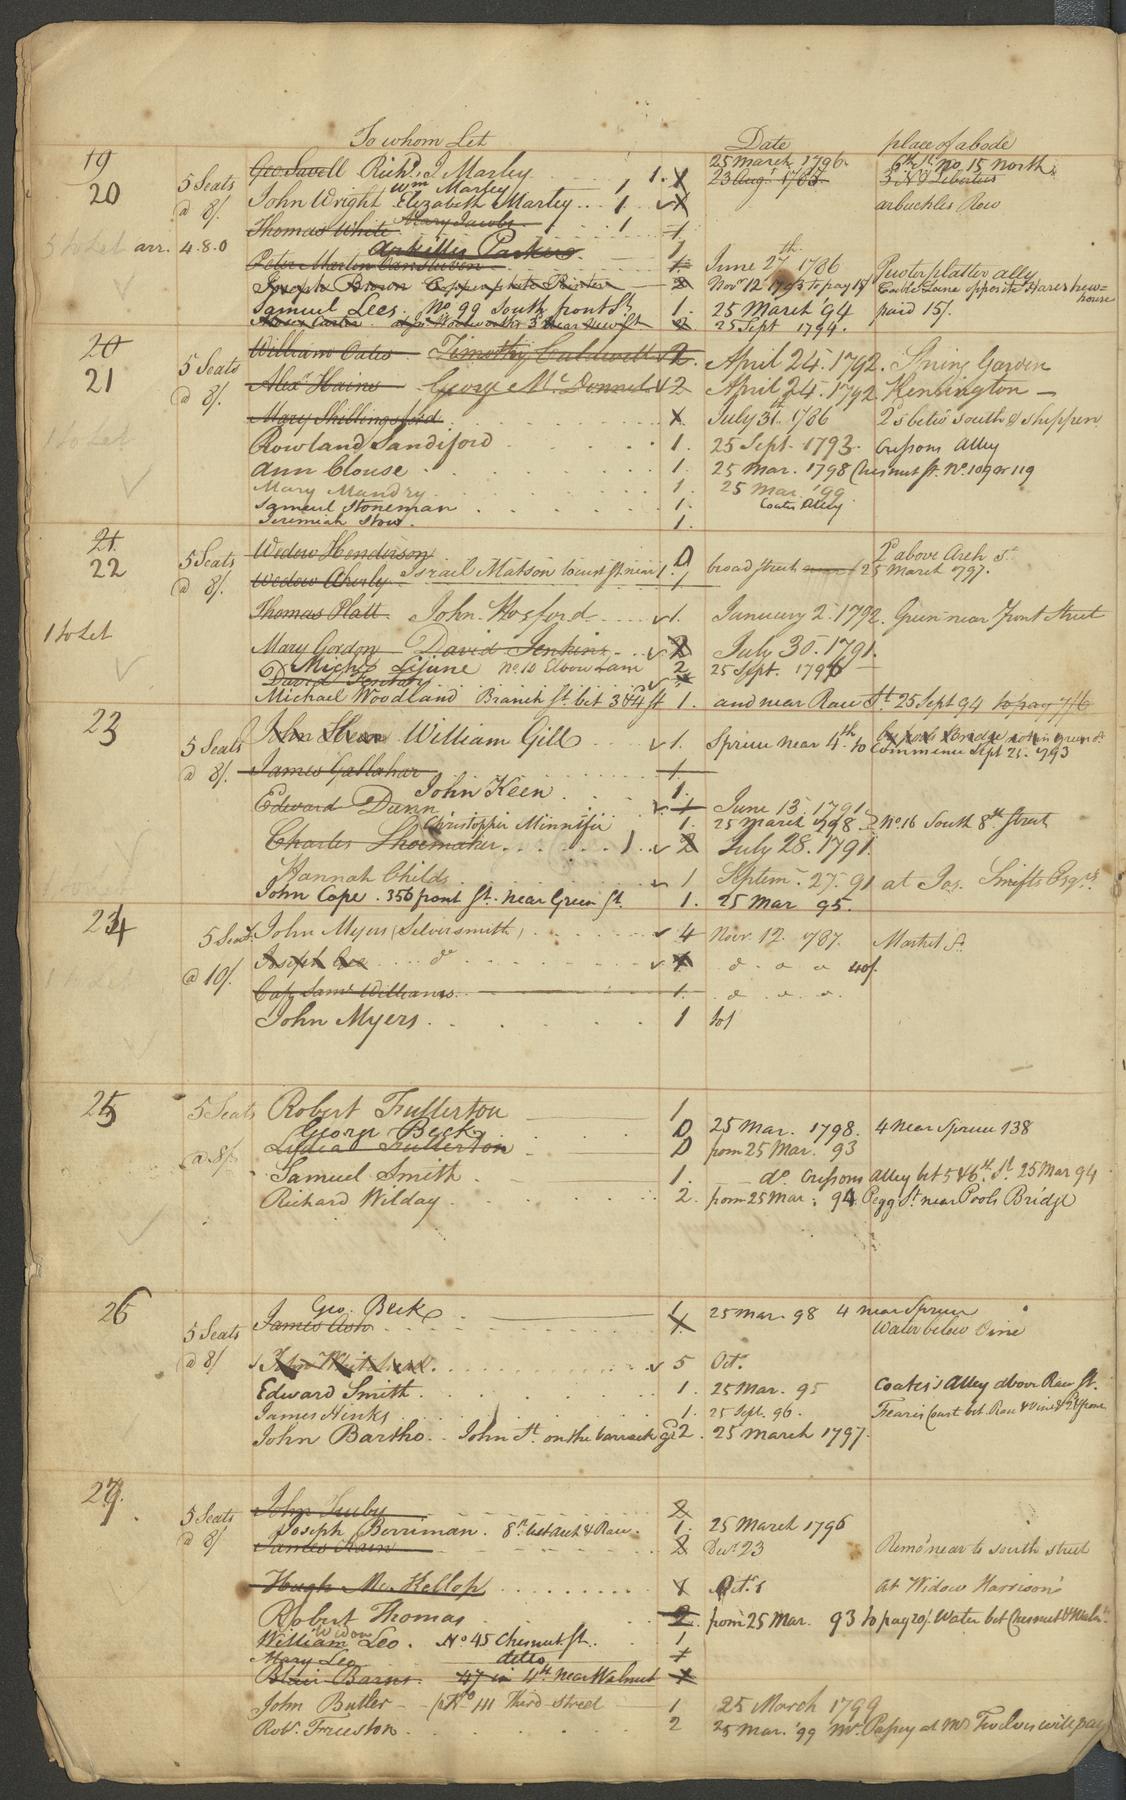 To whom Let Date place of abode
19
25 March 1796. 6th St. No. 15 North
Geo Savell Richd. I Marley 1. 1 23 Aug. 1785 3d N Liberties
20 5 Seats
Wm Marley 1
John Wright Elizabeth Marley 1 arbuckles Row
@ 8/.
Thomas White Mary Jacobs 1 1
5 to Let arr. 4.8.0
Parkers 1
Peter Martin 1 June 27th 1786 Pewter platter ally
Joseph Brown Copper plate Printer 2 Novr 12 1793 to pay 15/ Cable Lane opposite Hares brew=
house
Samuel Lees. No. 99 South front St. 1. 25 March '94 paid 15/.
2 25 Sept 1794.
20
William Oates. Timothy Caldwell 2. April 24. 1792. Spring Garden
5 Seats
21 Alexr Hains George Mc Donnel 2 April 24. 1792 Kensington
@ 8/.
Mary Shillingsford 1 July 31st. 1786 2d betw South & Shippen
1 to Let
Rowland Sandiford 1. 25 Sept. 1793. Cressons Alley
Ann Clouse 1. 25 Mar. 1798 Chesnut St. No. 109 or 119
Mary Mandry 1. 25 Mar. '99
Samuel Stoneman 1. Coates Alley
Jeremiah Stow. 1.
21.
Wedow Henderson D 2d above Arch St
22 5 Seats
Wedow Israel Matson locust St. near 1. broad street 25 March 1797.
@ 8/.
Thomas Platt John Hosford 1. January 2. 1792. Green near Front Street
1 to Let
Mary Gordon David Jenkins 2 July 30. 1791.
Michl. Lijune No. 10 Elbow Lane 2 25 Sept. 1796
David
Michael Woodland Branch St. bet 3d & 4 St 1. and near Race St. 25 Sept 94 to pay 7/6
23
John William Gill 1. Spruce near 4th to
5 Seats commence Sept 25. 1793
@ 8/. James Gallahar 1
John Keen 1.
Edward Dunn 1 June 13. 1791.
Christopher Minnifie 1. 25 March 1798 No. 16 South 8th Street
Charles Shoemaker 1. 2 July 28. 1791.
Hannah Childs 1 Septem. 27. 91 at Jas. Swifts Esqrs.
John Cope. 356 front St. near Green St. 1. 25 Mar 95.
24
5 Seats John Myers (Silversmith) 4 Novr. 12. 1787. Market St.
Joseph do 1 do. do do 40/.
@ 10/.
1 to Let
Capt Saml Williams 1. do. do. do.
John Myers 1
25 5 Seats Robert Fullerton 1
George Beck D 25 Mar. 1798. 4 near Spruce 138
@ 8/. Lydia Fullerton D from 25 Mar. 93
Samuel Smith 1. do. Cressons Alley bet 5 & 6th St. 25 Mar 94
Richard Wilday 2. from 25 Mar. 94 Pegg St. near Pools Bridge
26
Geo. Beck 1 25 Mar. 98 4 near Spruce
James Ash 1. Water below Vine
5 Seats
@ 8/ John 5 Oct.
Edward Smith 1. 25 Mar. 95 Coates's Alley above Race St.
James Hinks 1. 25 Sept. 96.
John Bartho. John St. on the barrack gr. 2. 25 March 1797.
27.
John 2
5 Seats
Joseph Berriman. 8th bet Arch & Race. 1. 25 March 1796
@ 8/ James 2 Decr 23 Remo near to South street
Hugh Mc Kellop 1 Octr. at Widow Harrison's
Robert Thomas 2. from 25 Mar. 93 to pay 20/. Water bet Chesnut &
Widow
William Leo. No 45 Chesnut St. 1
Mary Leo ditto 1
Blair Barns. 47 in 4th near Walnut 1
John Butler No 111 Third Street 1 25 March 1799
Rob. Freeston. 2 25 Mar. '99 Mr. at Mrs will pay